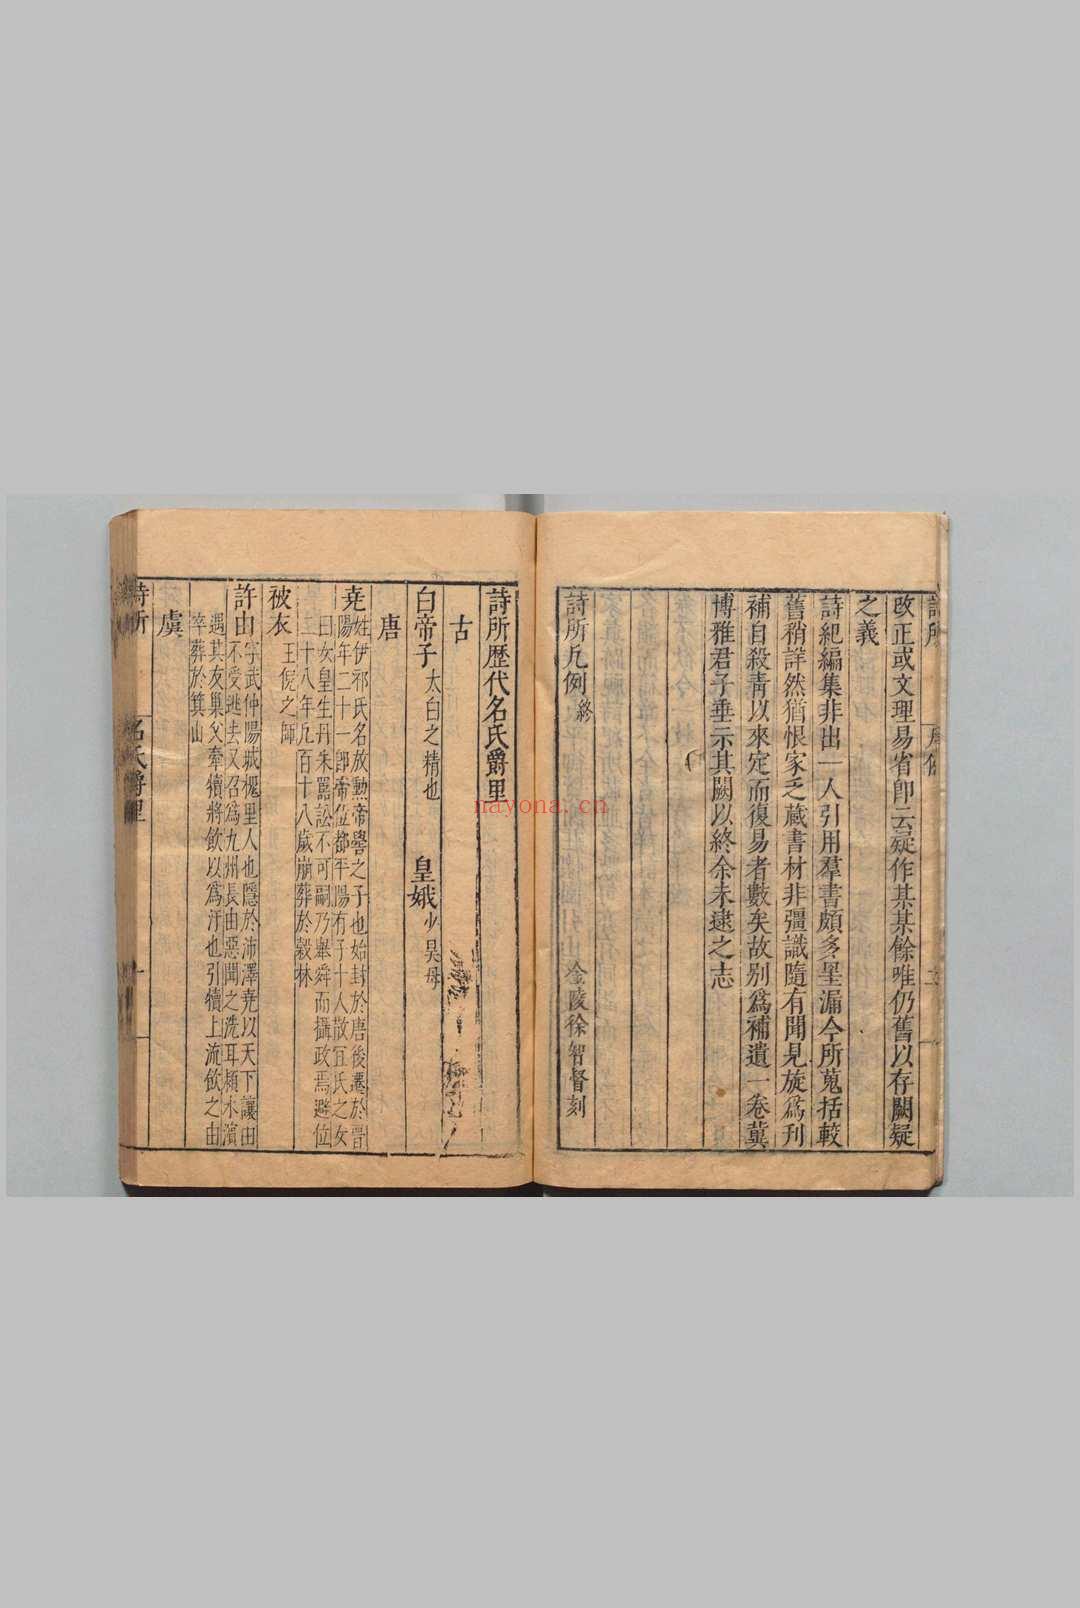 改正或文理易省即云疑作某某餘唯仍舊以存闕疑
之義
詩紀編集非出一人引用羣書頗多罣漏今所蒐括較
舊稍詳然猶恨家乏藏書材非彊識隨有聞見旋爲刋
補自殺青以來定而復易者數矣故别爲補遺一卷冀
博雅君子垂示其闕以終余未逮之志
詩所凡例終
金陵徐智督刻
詩所歷代名氏爵里
古
白帝子太白之精也
皇娥少昊母
唐
堯姓伊祁氏名放勲帝嚳之子也始封於唐後遷於晋
陽年二十一卽帝位都平陽有子十人散宜氏之女
曰女皇生丹朱嚚訟不可嗣乃舉舜而攝政焉避位
二十八年凡百十八歲崩葬於穀林
被衣王倪之師
許由字武仲陽城槐里人也隱於沛澤堯以天下讓由
不受逃去又召爲九州長由惡聞之洗耳潁水濱
遇其友巢父牽犢將飲以爲汙也引犢上流飲之由
卒葬於箕山
虞
詩所
名氏爵里
一
nayona.cn